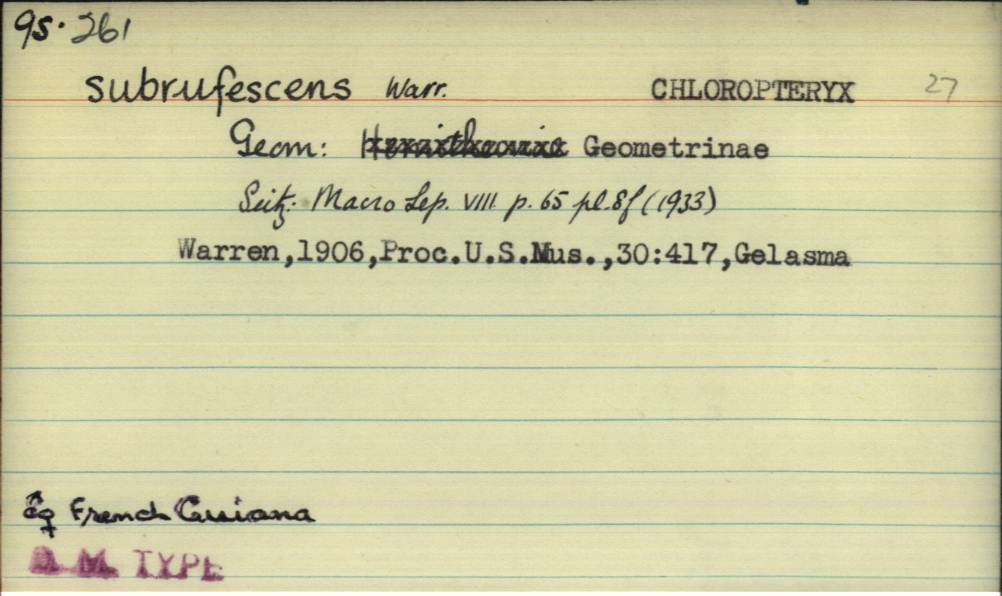 95.261
subrufescens Warr. CHLOROPTERYX 27
Geom: Geometrinae
Seitz. Macro Lep. VIII. p. 65 pl. 8f (1933)
Warren,1906,Proc.U.S.Mus.,30:417,Gelasma
♂♀ French Guiana
B. M. TYPE